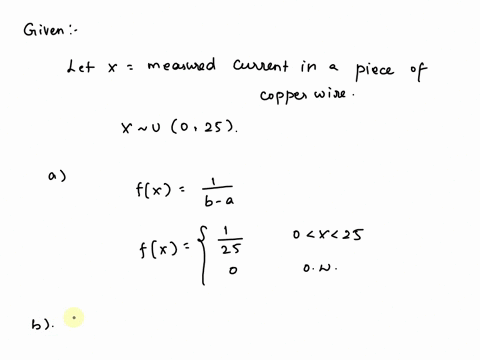 Given:-
Let x = measured current in a piece of
copper wire.
X ~ U (0, 25).
a)
f(x) = 1/(b-a)
f(x) = { 1/25 0 < x < 25
0 o.w.
b).